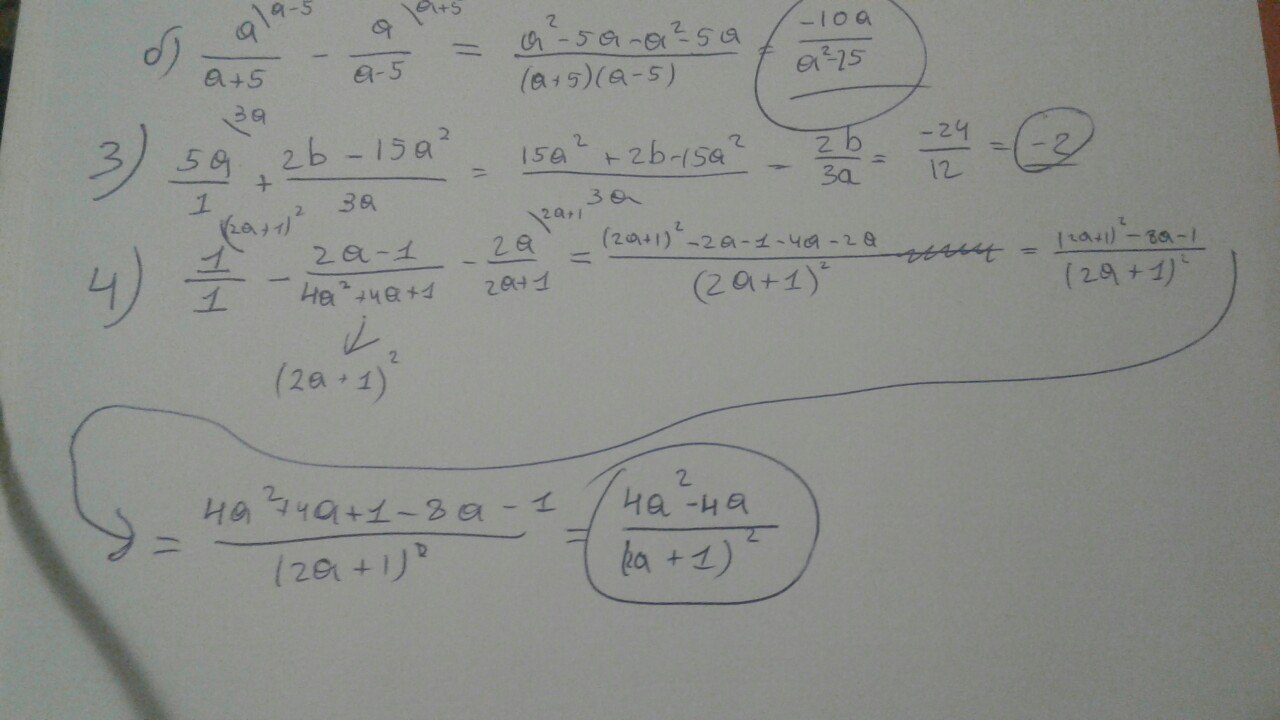 б) a\a-5 / a+5 - a\a+5 / a-5 = a²-5a-a²-5a / (a+5)(a-5) = -10a / a²-25
3) 5a\3a / 1 + 2b-15a² / 3a = 15a²+2b-15a² / 3a - 2b / 3a = -24 / 12 = -2
4) 1\(2a+1)² / 1 - 2a-1 / 4a²+4a+1 - 2a\2a+1 / 2a+1 = (2a+1)²-2a-1-4a-2a / (2a+1)² = (2a+1)²-8a-1 / (2a+1)²
(2a+1)²
= 4a²+4a+1-8a-1 / (2a+1)² = 4a²-4a / (2a+1)²